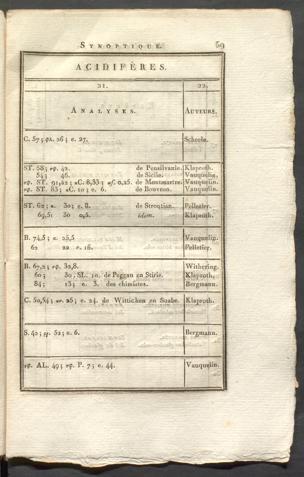 SYNOPTIQUE. 69
ACIDIFÈRES.
21. 22.
ANALYSES. AUTEURS.
C. 57; 26; e. 27. Scheele.
ST. 58; 42. de Pensilvanie. Klaproth.
54; 46. de Sicile. Vauquelin.
ST. 91,22; C. 8,33; 0,25. de Montmartre. Vauquelin.
ST. 83; C. 10; e. 6. de Bouvron. Vauquelin.
ST. 62; 30; e. 8. de Strontian. Pelletier.
69,5; 30 0,5. idem. Klaproth.
B. 74,5; 25,5 Vauquelin.
62 22 e. 16. Pelletier.
B. 67,2; 32,8. Withering.
60; 30, SL. 10. de Peggau en Stirie. Klaproth.
84; 13; e. 3. des chimistes. Bergmann.
C. 50,54; 26; e. 24. de Wittichen en Suabe. Klaproth.
S. 40; 52; e. 6. Bergmann.
AL. 49; P. 7; e. 44. Vauquelin.